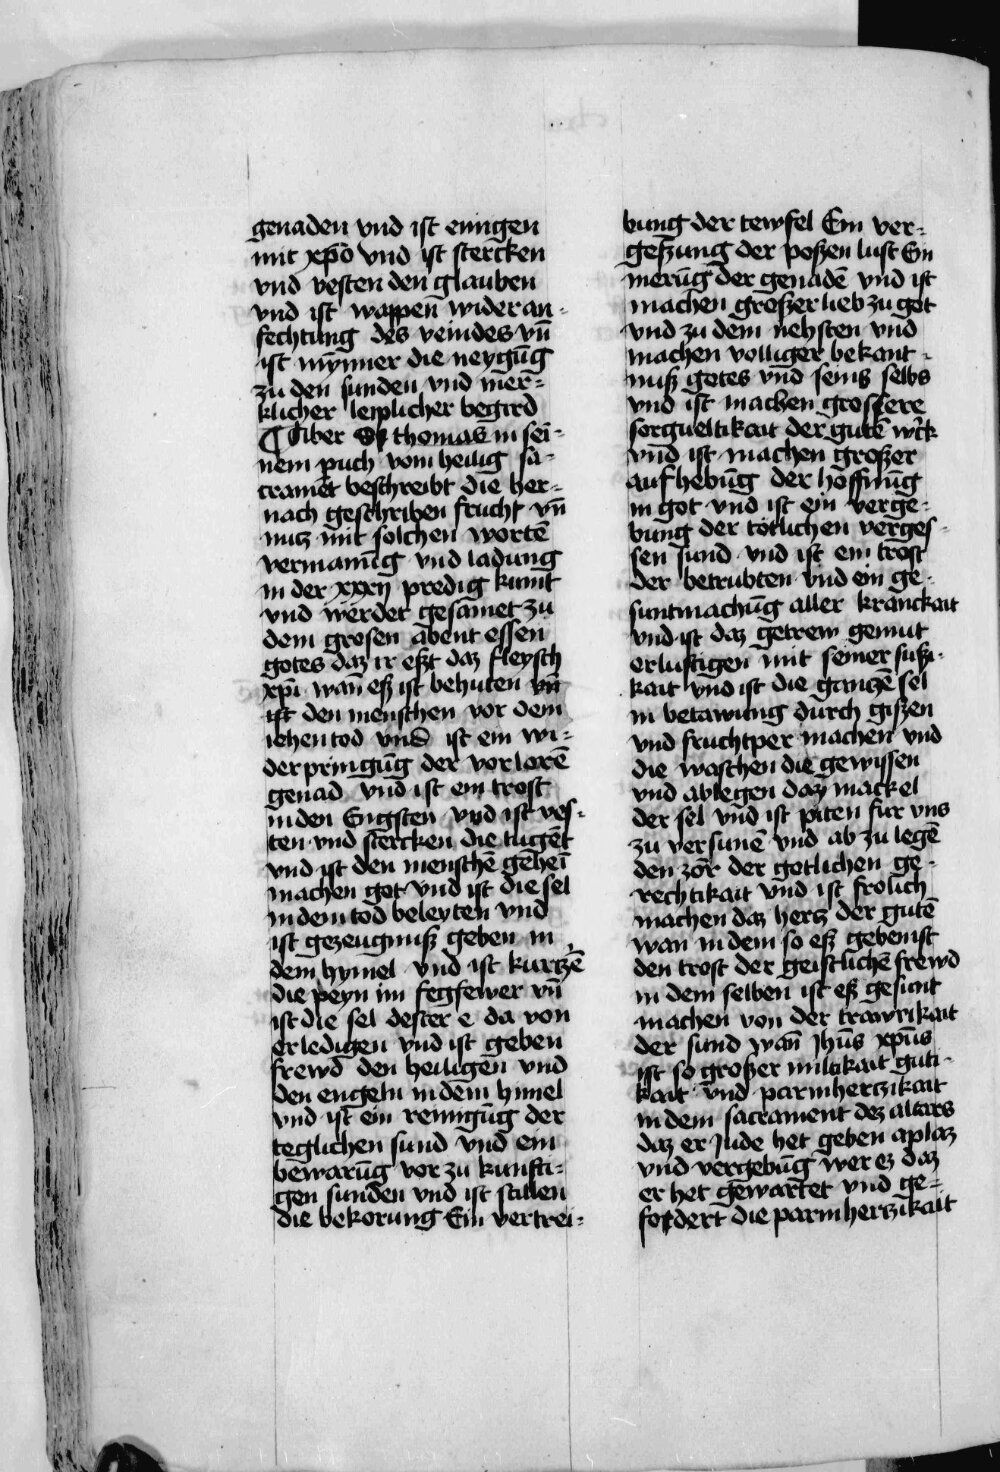 genaden vnd ist einigen
mit xp̄o vnd ist stercken
vnd vesten den glauben
vnd ist wappen̄ wider an-
fechtung des veindes vn̄
ist mynner die neygūg
zu den sunden vnd mer-
klicher leiplicher begird
¶ Aber thomas in sei-
nem puch vom heilig sa-
cramēt beschreibt die her-
nach geschriben frucht vn̄
nutz mit solchen wortē
vermanūg vnd ladung
in der xxxij predig kumt
vnd werdet gesamet zu
dem grosen abent essen
gotes daz ir eszt daz fleysch
xp̄i wan̄ esz ist behuten vn̄
ist den menschen vor dem
iehen tod vnd ist ein wi-
derpringūg der vorlorē
genad vnd ist ein trost
in den Engsten vnd ist ves-
ten vnd stercken die tugēt
vnd ist den menschē gēheī
machen got vnd ist die sel
in dem tod beleyten vnd
ist gezeugnusz geben in
dem hymel vnd ist kurtzē
die peyn im fegfewer vn̄
ist die sel dester e da von
erledigen vnd ist geben
frewd den heiligen vnd
den engeln in dem himel
vnd ist ein reinigūg der
teglichen sund vnd ein
bewarūg vor zu kunfti-
gen sunden vnd ist stillen
die bekorung Ein vertrei-
bung der tewfel Ein ver-
geszung der poszen lust Ein
merūg der genadē vnd ist
machen groszer lieb zu got
vnd zu dem nehsten vnd
machen volliger bekant-
nusz gotes vnd seins selbs
vnd ist machen grossere
sorgueltikait der gutē w̄ck
vnd ist machen groszer
aufhebūg der hoffnūg
in got vnd ist ein verge-
bung der totlichen verges-
sen sund vnd ist ein trost
der betrubten vnd ein ge-
suntmachūg aller kranckait
vnd ist daz getrew gemut
erlustigen mit seiner suszi-
kait vnd ist die gantzē sel
in betawung durch giszen
vnd fruchtper machen vnd
die waschen die gewissen
vnd ablegen daz mackel
der sel vnd ist piten fur vns
zu versunē vnd ab zu legē
den zōr der gotlichen ge-
rechtikait vnd ist frolich
machen daz hertz der gutē
wan in dem so esz geben ist
den trost der geistlichē frewd
in dem selben ist esz gesunt
machen von der trawrikait
der sund wan̄ Jhūs xp̄us
ist so groszer miltikait guti-
kait vnd parmhertzikait
in dem sacrament dez altars
daz er Jude het geben aplaz
vnd vergebūg wer ez daz
er het gewartet vnd ge-
fordert die parmhertzikait